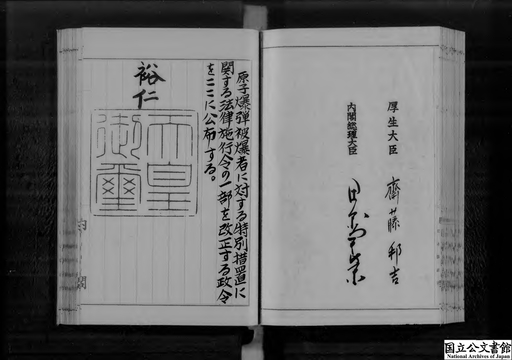 厚生大臣 齋藤邦吉
内閣総理大臣 田中角栄
原子爆弾被爆者に対する特別措置に
関する法律施行令の一部を改正する政令
をここに公布する。
裕仁
天皇
御璽
国立公文書館
National Archives of Japan